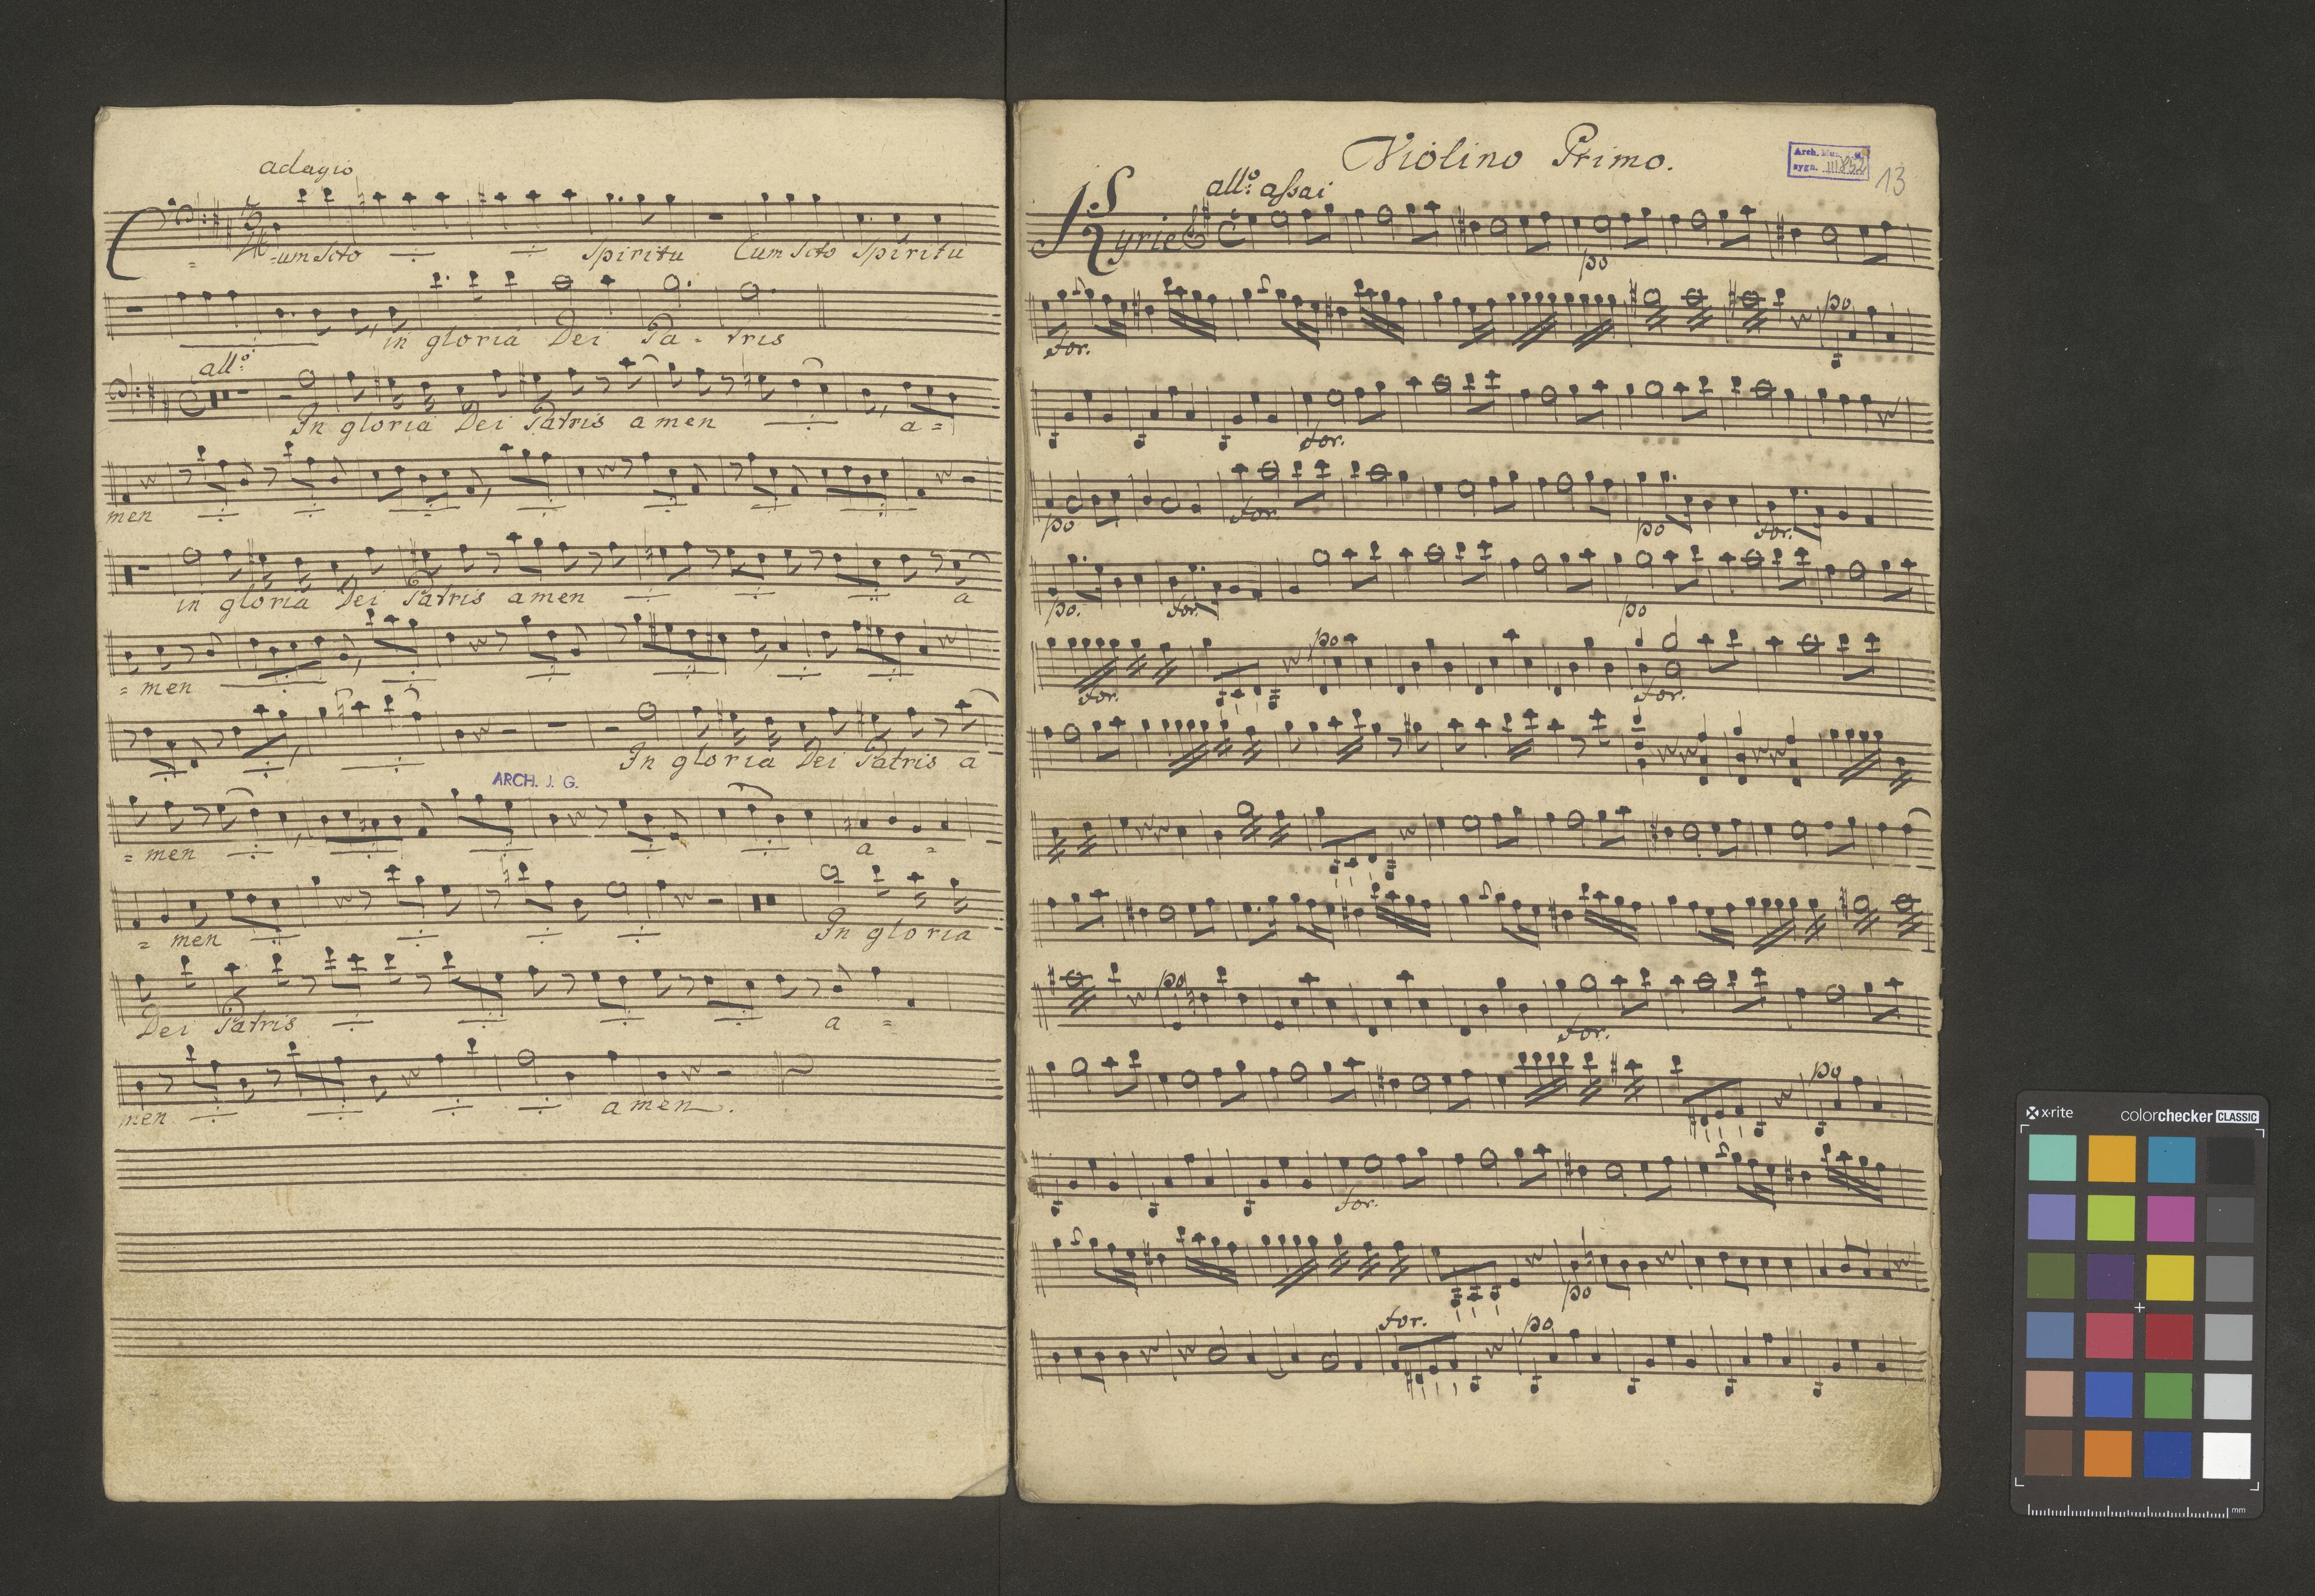 adagio
Cum Scto Spiritu Cum Scto Spiritu
in gloria Dei Pa - tris
allo:
In gloria Dei Patris amen a =
men
in gloria Dei Patris amen a
= men
In gloria Dei Patris a
ARCH. J. G.
= men a =
= men In gloria
Dei Patris a =
men amen.
Violino Primo.
Arch. Mu
sygn. III 852
13
Kyrie allo: assai
po
for. po
for.
po for. po for.
po. for. po
for. po for.
po for.
po
for.
po
for. po
x-rite colorchecker CLASSIC
mm